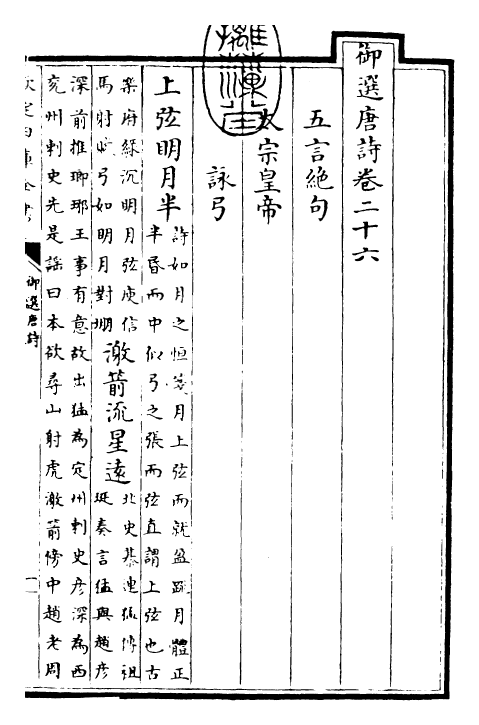 御選唐詩卷二十六
五言絶句
太宗皇帝
詠弓
上弦明月半詩如月之恒箋月上弦而就盈疏月體正
半昏而中似弓之張而弦直謂上弦也古
樂府緑沉明月弦庾信
馬射賦弓如明月對堋激箭流星遠北史綦連猛傳祖
珽奏言猛與趙彦
深前推瑯琊王事有意故出猛為定州刺史彦深為西
兖州刺史先是謡曰本欲尋山射虎激箭傍中趙老周
欽定四庫全書
御選唐詩
一